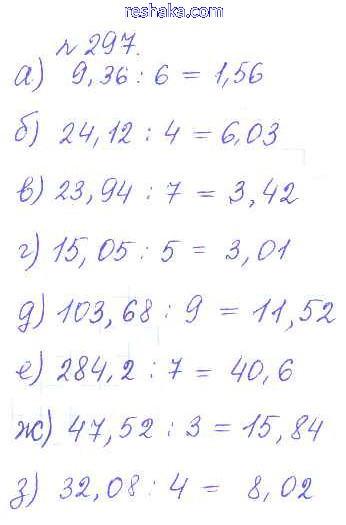 reshaka.com
№ 297.
а) 9,36 : 6 = 1,56
б) 24,12 : 4 = 6,03
в) 23,94 : 7 = 3,42
г) 15,05 : 5 = 3,01
д) 103,68 : 9 = 11,52
е) 284,2 : 7 = 40,6
ж) 47,52 : 3 = 15,84
з) 32,08 : 4 = 8,02